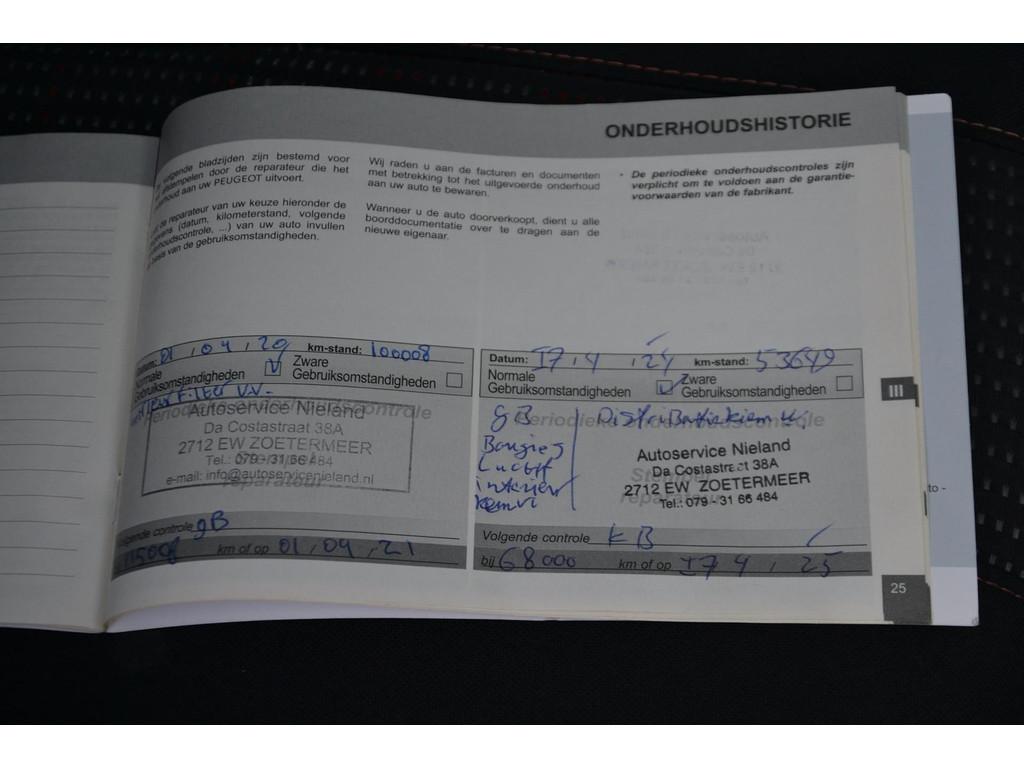 ONDERHOUDSHISTORIE
volgende bladzijden zijn bestemd voor
afstempelen door de reparateur die het
onderhoud aan uw PEUGEOT uitvoert.
de reparateur van uw keuze hieronder de
gegevens (datum, kilometerstand, volgende
onderhoudscontrole, ...) van uw auto invullen
basis van de gebruiksomstandigheden.
Wij raden u aan de facturen en documenten
met betrekking tot het uitgevoerde onderhoud
aan uw auto te bewaren.
Wanneer u de auto doorverkoopt, dient u alle
boorddocumentatie over te dragen aan de
nieuwe eigenaar.
• De periodieke onderhoudscontroles zijn
verplicht om te voldoen aan de garantie-
voorwaarden van de fabrikant.
Datum: 01, 04, 20 km-stand: 100008
Normale
Gebruiksomstandigheden
Zware
Gebruiksomstandigheden
Periodieke onderhoudscontrole
Autoservice Nieland
Da Costastraat 38A
2712 EW ZOETERMEER
Tel.: 079 - 31 66 484
e-mail: info@autoservicenieland.nl
Stempel
reparateur
Volgende controle gB
km of op 01, 04, 21
Datum: 17, 4, 24 km-stand: 53649
Normale
Gebruiksomstandigheden
Zware
Gebruiksomstandigheden
gB
Bougies
Lucht
interieur
Periodieke onderhoudscontrole
Autoservice Nieland
Da Costastraat 38A
2712 EW ZOETERMEER
Tel.: 079 - 31 66 484
Stempel
reparateur
Volgende controle KB
bij 68000 km of op 17 4, 25
III
to -
25